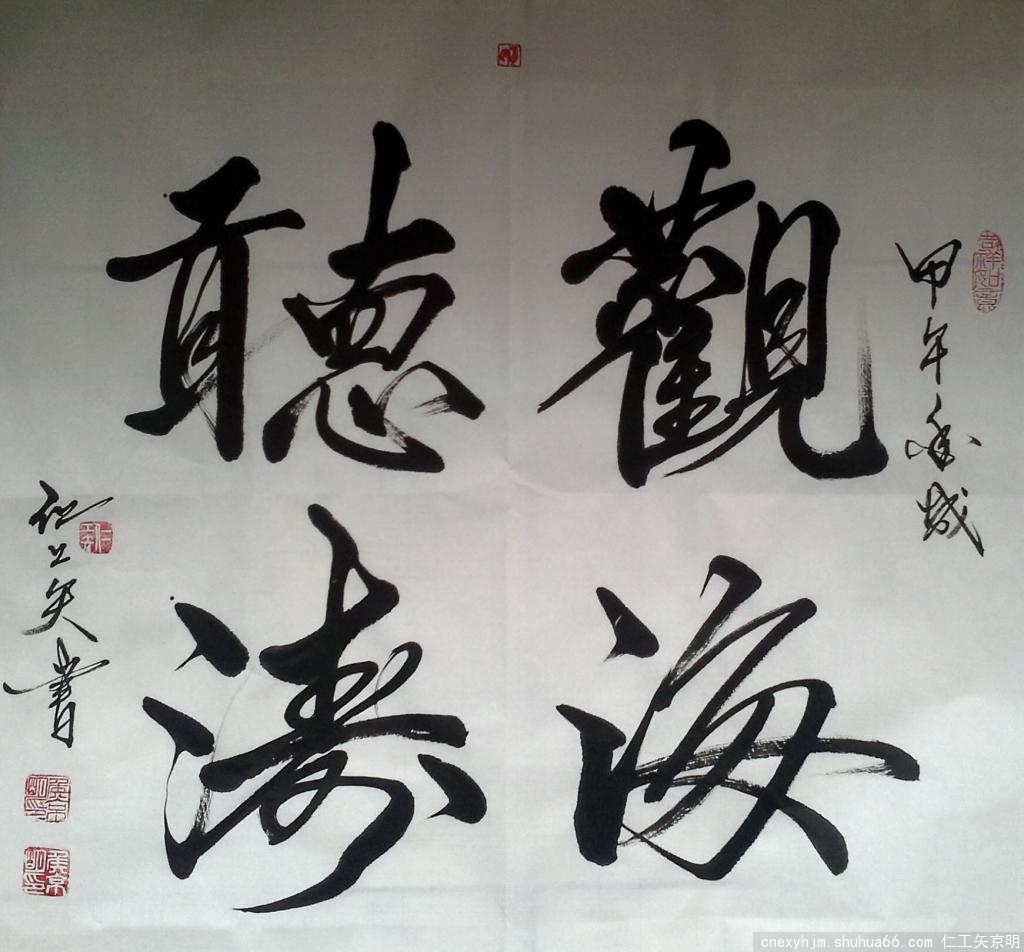 吉祥如意
甲午
觀海
聽濤
仁工矢書
cnexyhjm.shuhua66.com 仁工矢京明